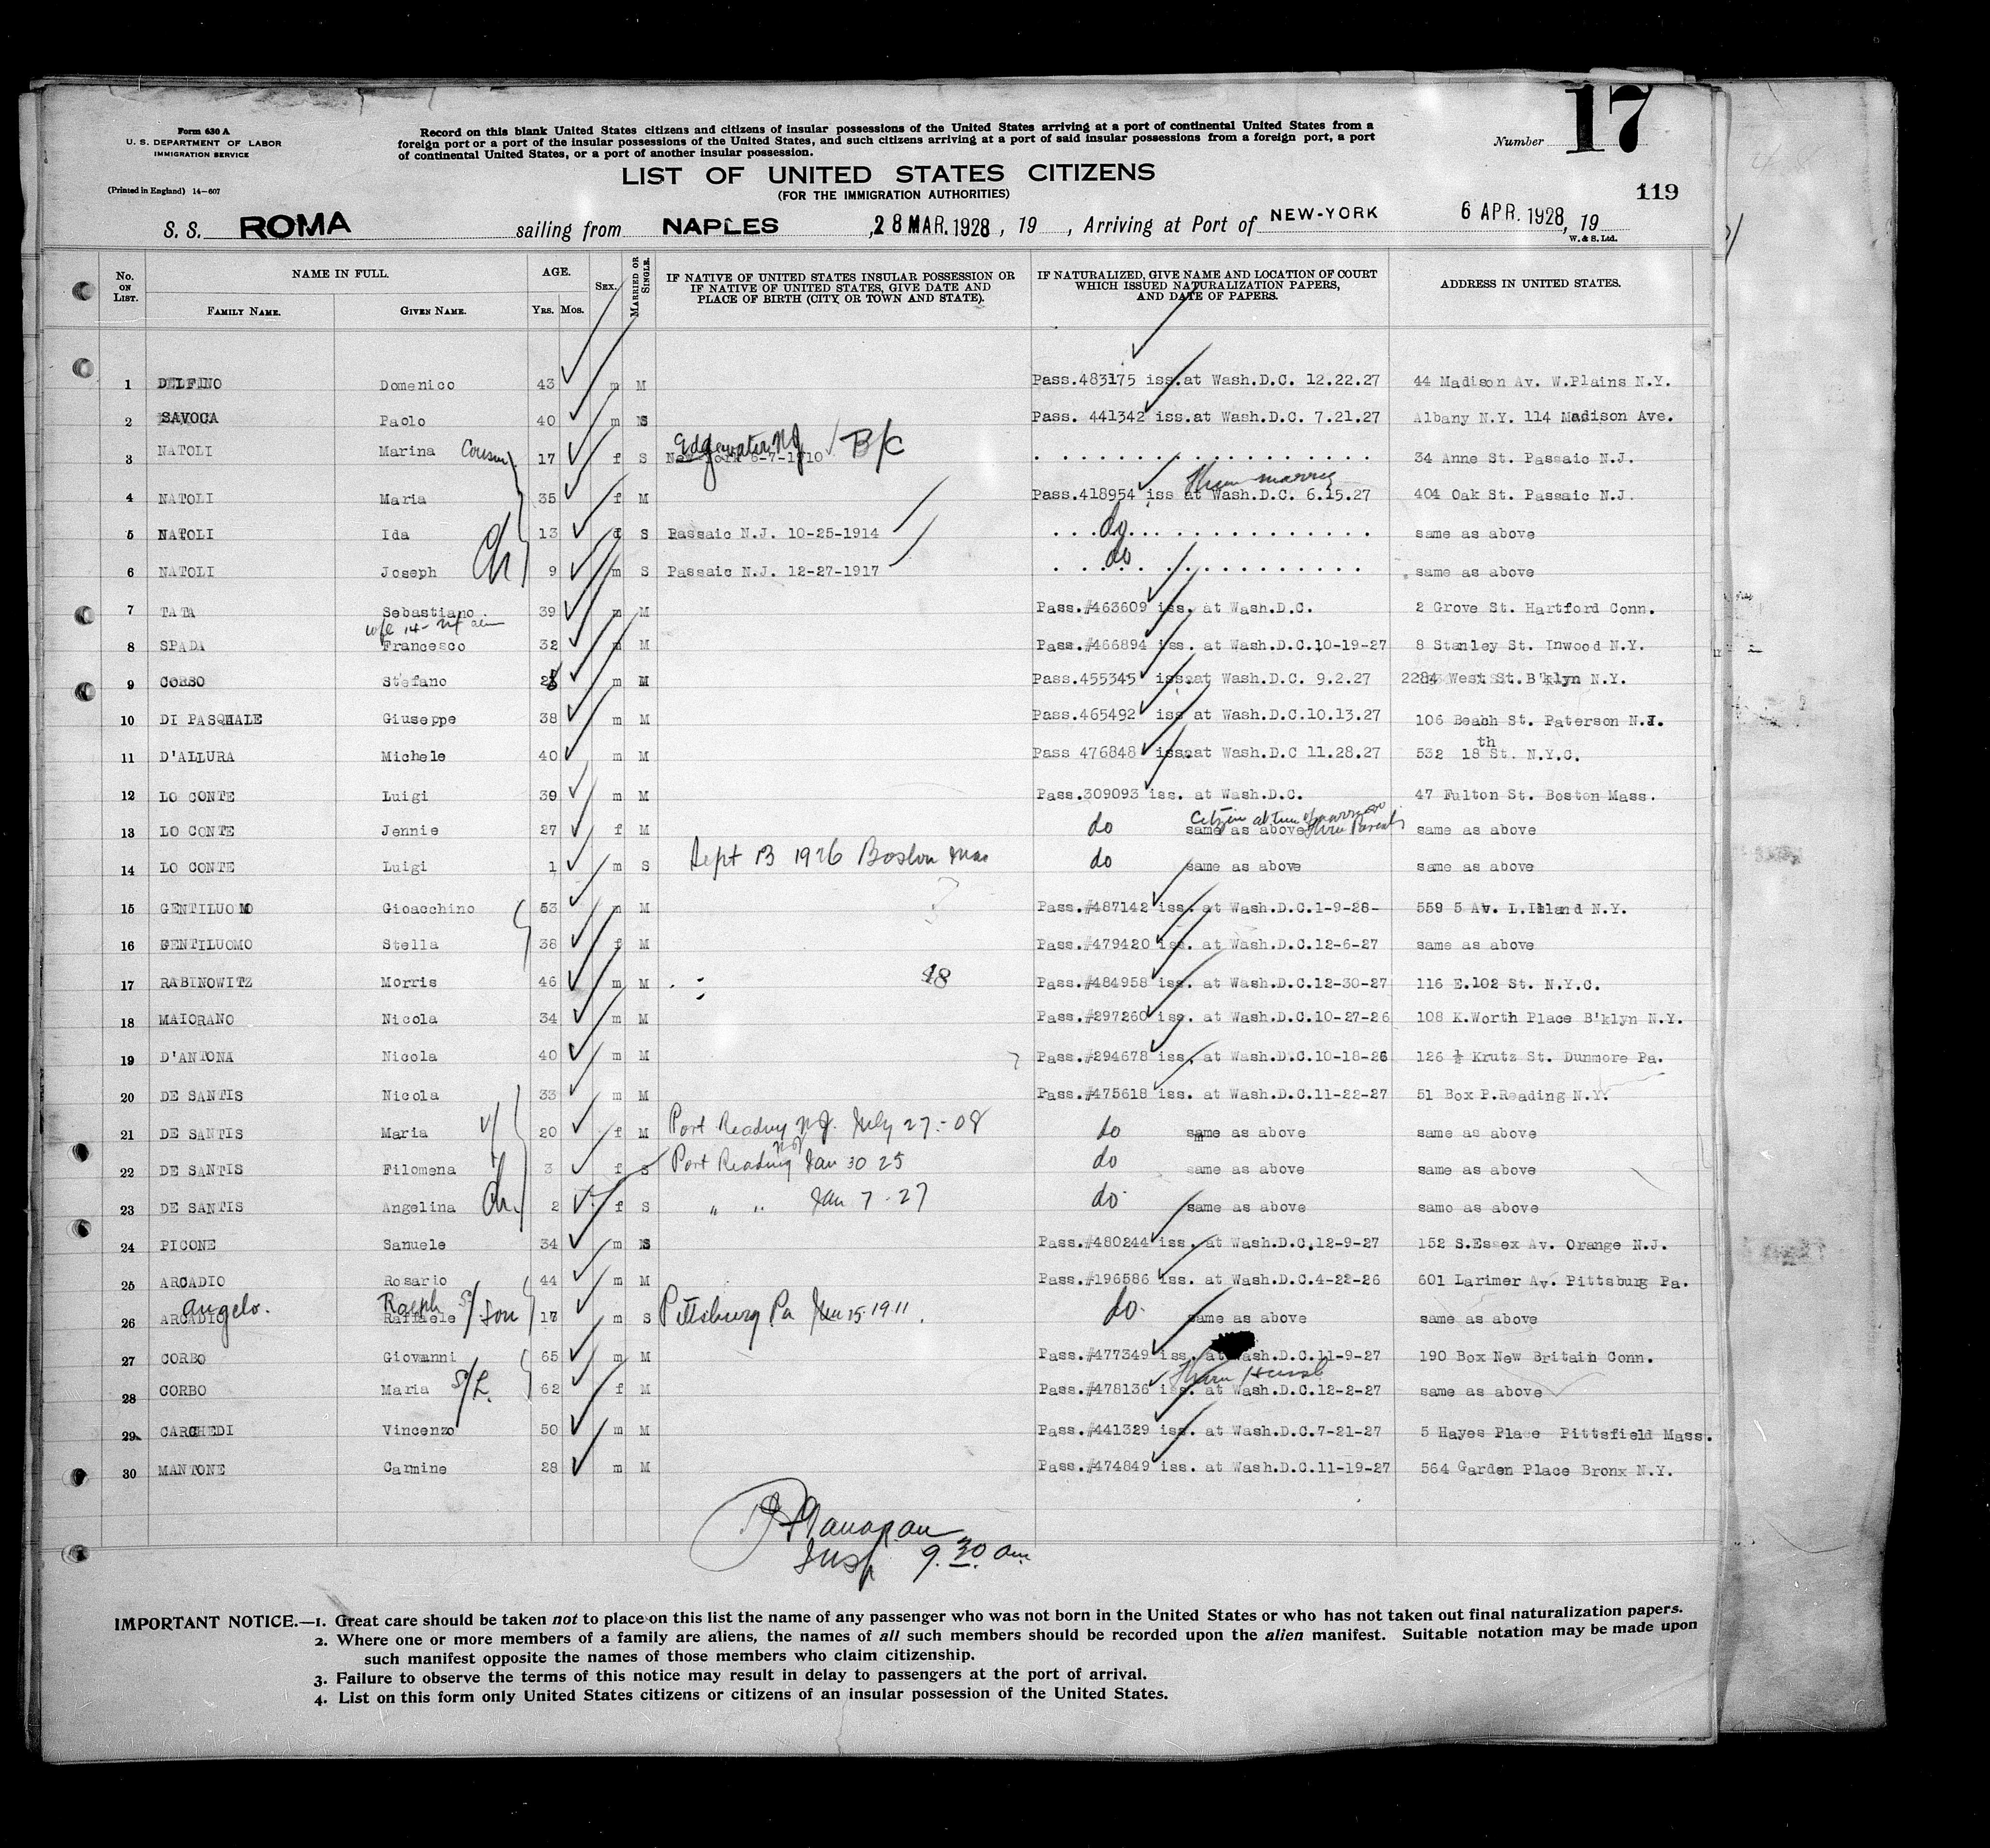 Form 630 A
U. S. DEPARTMENT OF LABOR
IMMIGRATION SERVICE
(Printed in England) 14-607
Record on this blank United States citizens and citizens of insular possessions of the United States arriving at a port of continental United States from a
foreign port or a port of the insular possessions of the United States, and such citizens arriving at a port of said insular possessions from a foreign port, a port
of continental United States, or a port of another insular possession.
Number 17
LIST OF UNITED STATES CITIZENS
(FOR THE IMMIGRATION AUTHORITIES)
119
S. S. ROMA sailing from NAPLES , 28 MAR. 1928 , 19 , Arriving at Port of NEW-YORK 6 APR. 1928, 19
W. & S. Ltd.
No. ON LIST. NAME IN FULL. AGE. SEX. MARRIED OR SINGLE. IF NATIVE OF UNITED STATES INSULAR POSSESSION OR IF NATIVE OF UNITED STATES, GIVE DATE AND PLACE OF BIRTH (CITY OR TOWN AND STATE). IF NATURALIZED, GIVE NAME AND LOCATION OF COURT WHICH ISSUED NATURALIZATION PAPERS, AND DATE OF PAPERS. ADDRESS IN UNITED STATES.
FAMILY NAME. GIVEN NAME. YRS. MOS.
1 DELFINO Domenico 43 m M Pass.483175 iss.at Wash.D.C. 12.22.27 44 Madison Av. W.Plains N.Y.
2 SAVOCA Paolo 40 m S Pass. 441342 iss.at Wash.D.C. 7.21.27 Albany N.Y. 114 Madison Ave.
3 NATOLI Marina Cousin 17 f S Edgewater NJ B/C New York 6-7-1910 34 Anne St. Passaic N.J.
4 NATOLI Maria 35 f M Pass.418954 iss at Wash.D.C. 6.15.27 Thru marriage 404 Oak St. Passaic N.J.
5 NATOLI Ida 13 f S Passaic N.J. 10-25-1914 do same as above
6 NATOLI Joseph Ch 9 m S Passaic N.J. 12-27-1917 do same as above
7 TATA Sebastiano 39 m M Pass.#463609 iss. at Wash.D.C. 2 Grove St. Hartford Conn.
8 SPADA Francesco 32 m M Pass.#466894 iss. at Wash.D.C.10-19-27 8 Stanley St. Inwood N.Y.
9 CORSO Stefano m M Pass.455345 iss.at Wash.D.C. 9.2.27 2284 West St.B'klyn N.Y.
10 DI PASQUALE Giuseppe 38 m M Pass.465492 iss at Wash.D.C.10.13.27 106 Beach St. Paterson N.J.
11 D'ALLURA Michele 40 m M Pass 476848 iss.at Wash.D.C 11.28.27 532 18th St. N.Y.C.
12 LO CONTE Luigi 39 m M Pass.309093 iss. at Wash.D.C. 47 Fulton St. Boston Mass.
13 LO CONTE Jennie 27 f M do same as above Citizen at time of marriage Thru Parents same as above
14 LO CONTE Luigi 1 m S Sept 13 1926 Boston Mas do same as above same as above
15 GENTILUOMO Gioacchino 53 m M Pass.#487142 iss. at Wash.D.C.1-9-28- 559 5 Av. L.Island N.Y.
16 GENTILUOMO Stella 38 f M Pass.#479420 iss. at Wash.D.C.12-6-27 same as above
17 RABINOWITZ Morris 46 m M 48 Pass.#484958 iss. at Wash.D.C.12-30-27 116 E.102 St. N.Y.C.
18 MAIORANO Nicola 34 m M Pass.#297260 iss. at Wash.D.C.10-27-26 108 K.Worth Place B'klyn N.Y.
19 D'ANTONA Nicola 40 m M Pass.#294678 iss. at Wash.D.C.10-18-26 126 ½ Krutz St. Dunmore Pa.
20 DE SANTIS Nicola 33 m M Pass.#475618 iss. at Wash.D.C.11-22-27 51 Box P.Reading N.Y.
21 DE SANTIS Maria w/ 20 f M Port Reading NJ. July 27-08 do same as above same as above
22 DE SANTIS Filomena 3 f S Port Reading NJ Jan 30 25 do same as above same as above
23 DE SANTIS Angelina Ch. 2 f S " " Jan 7-27 do same as above same as above
24 PICONE Sanuele 34 m S Pass.#480244 iss. at Wash.D.C.12-9-27 152 S.Essex Av. Orange N.J.
25 ARCADIO Rosario 44 m M Pass.#196586 iss. at Wash.D.C.4-22-26 601 Larimer Av. Pittsburg Pa.
26 ARCADIO Angelo. Raffaele Ralph Son m S Pittsburg Pa 15-1911 do. same as above same as above
27 CORBO Giovanni 65 m M Pass.#477349 iss. at Wash.D.C.11-9-27 190 Box New Britain Conn.
28 CORBO Maria 62 f M Pass.#478136 iss. at Wash.D.C.12-2-27 Thru Husb same as above
29 CARCHEDI Vincenzo 50 m M Pass.#441329 iss. at Wash.D.C.7-21-27 5 Hayes Place Pittsfield Mass.
30 MANTONE Carmine 28 m M Pass.#474849 iss. at Wash.D.C.11-19-27 564 Garden Place Bronx N.Y.
Insp 9.30. am
IMPORTANT NOTICE.—1. Great care should be taken not to place on this list the name of any passenger who was not born in the United States or who has not taken out final naturalization papers.
2. Where one or more members of a family are aliens, the names of all such members should be recorded upon the alien manifest. Suitable notation may be made upon
such manifest opposite the names of those members who claim citizenship.
3. Failure to observe the terms of this notice may result in delay to passengers at the port of arrival.
4. List on this form only United States citizens or citizens of an insular possession of the United States.